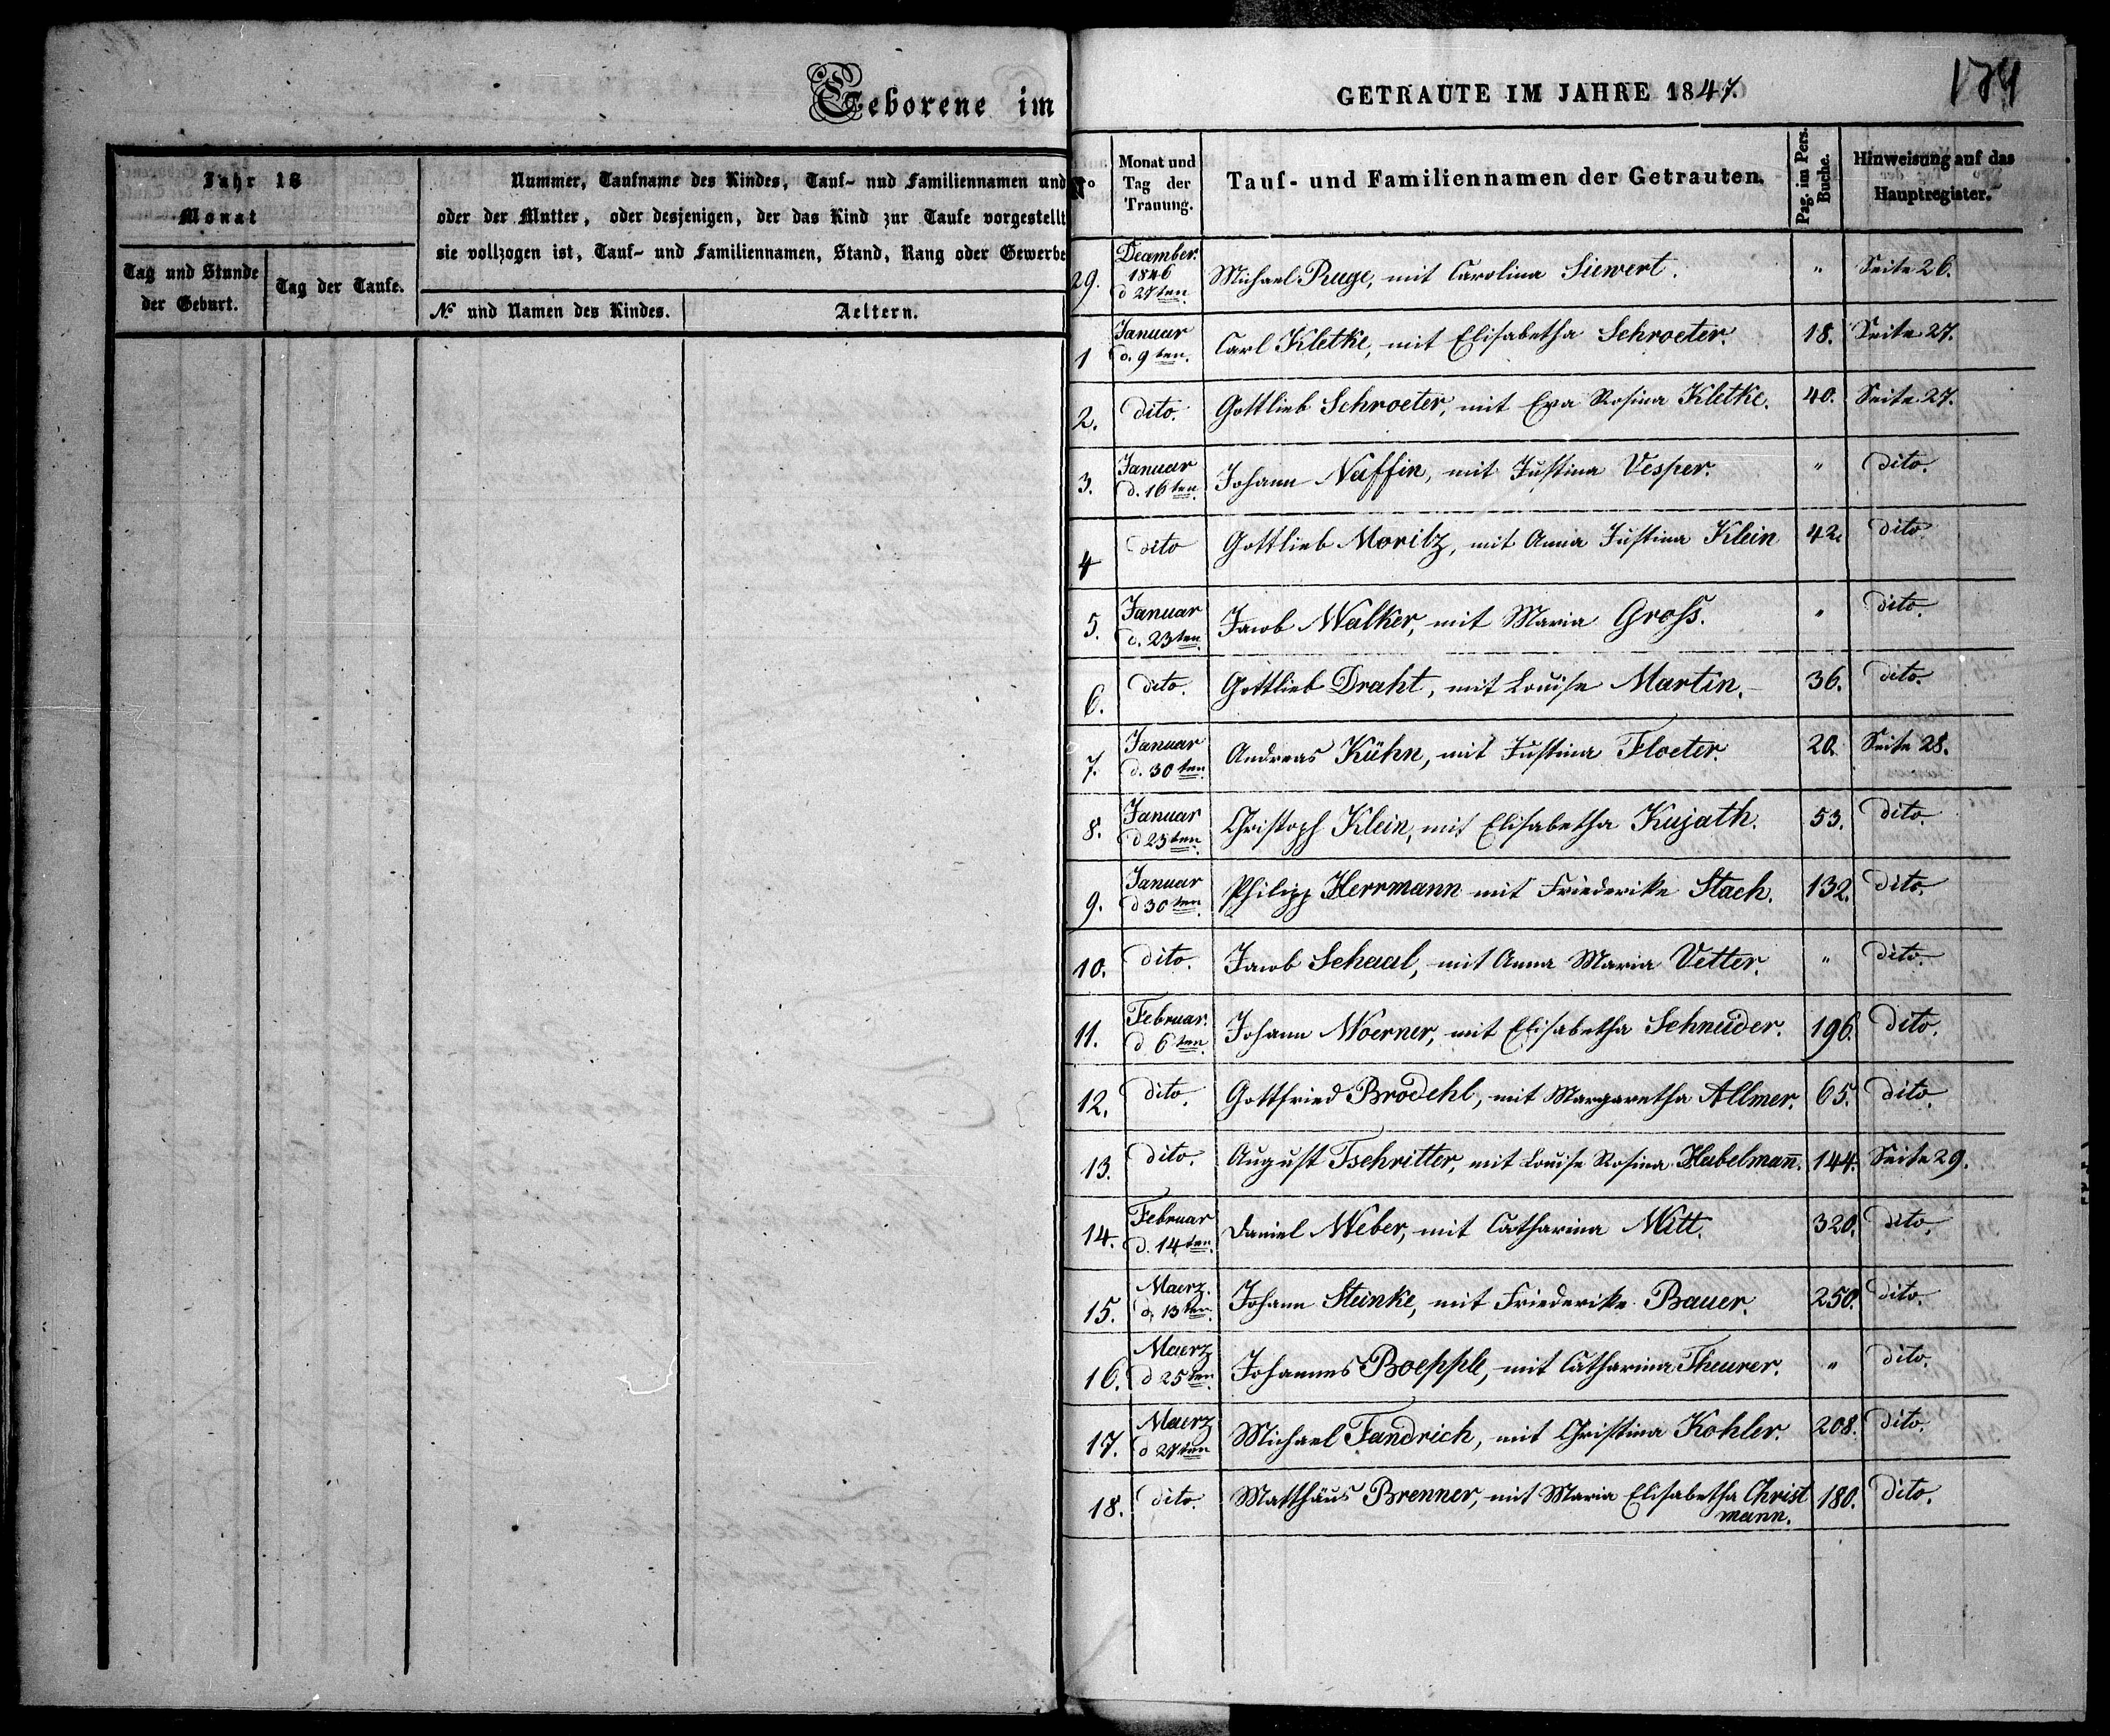 Geborene im
Jahr 18
Monat
Nummer, Taufname des Kindes, Tauf- und Familiennamen und
oder der Mutter, oder desjenigen, der das Kind zur Taufe vorgestellt
sie vollzogen ist, Tauf- und Familiennamen, Stand, Rang oder Gewerbe
Tag und Stunde
der Geburt.
Tag der Taufe.
No und Namen des Kindes.
Aeltern.
GETRAUTE IM JAHRE 1847.
No
Monat und
Tag der
Trauung.
Tauf- und Familiennamen der Getrauten.
Pag. im Pers.
Buche.
Hinweisung auf das
Hauptregister.
29. December 1846 d 27ten Michael Ruge, mit Carolina Siewert. " Seite 26.
1 Januar d. 9ten. Carl Kletke, mit Elisabetha Schroeter. 18. Seite 27.
2. dito. Gottlieb Schroeter, mit Eva Rosina Kletke. 40. Seite 27.
3. Januar d. 16ten. Johann Naffin, mit Justina Vesper. " dito.
4 dito Gottlieb Moritz, mit Anna Justina Klein 42. dito
5. Januar d. 23ten Jacob Walker, mit Maria Groß. " dito.
6. dito. Gottlieb Draht, mit Louise Martin. 36. dito.
7. Januar d. 30ten Andreas Kühn, mit Justina Floeter. 20. Seite 28.
8. Januar d 23ten. Christoph Klein, mit Elisabetha Kujath. 53. dito.
9. Januar d 30ten Philipp Herrmann mit Friederike Stach. 132. dito.
10. dito. Jacob Schaal, mit Anna Maria Vetter. " dito.
11. Februar. d 6ten Johann Woerner, mit Elisabetha Schneider. 196. dito.
12. dito. Gottfried Brodehl, mit Margaretha Allmer. 65. dito.
13. dito. August Tschritter, mit Louise Rosina Habelmañ. 144. Seite 29.
14. Februar d. 14ten. Daniel Weber, mit Catharina Witt. 320. dito.
15. Maerz. d. 13ten. Johann Steinke, mit Friederike Bauer. 250. dito.
16. Maerz d 25ten Johannes Boepple, mit Catharina Theurer. " dito.
17. Maerz d 27ten Michael Fandrich, mit Christina Kohler. 208. dito.
18. dito. Matthäus Brenner, mit Maria Elisabetha Christ 180. dito.
mann.